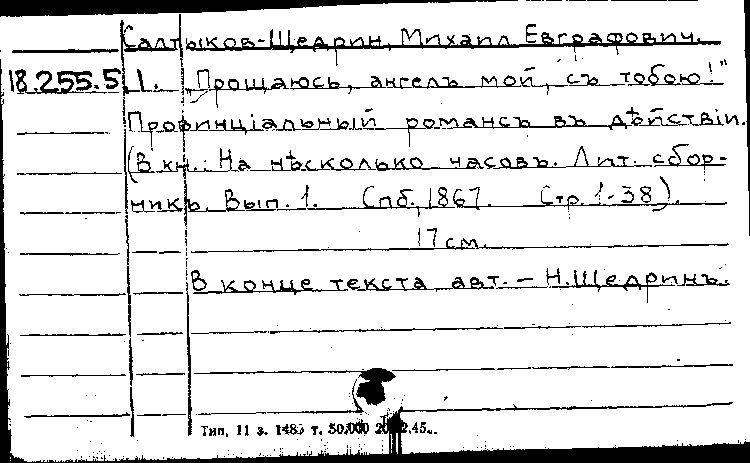 Салтыков-Щедрин, Михаил Евграфович.
18.255.5.1. „Прощаюсь, ангелъ мой, съ тобою!"
Провинціальный романсъ въ дѣйствіи.
(В кн.: На нѣсколько часовъ. Лит. сбор-
никъ. Вып. 1. Спб, 1867. Стр. 1-38).
17 см.
В конце текста авт. – Н.Щедринъ.
Тип. 11 з. 148 т. 50.000 2 .45